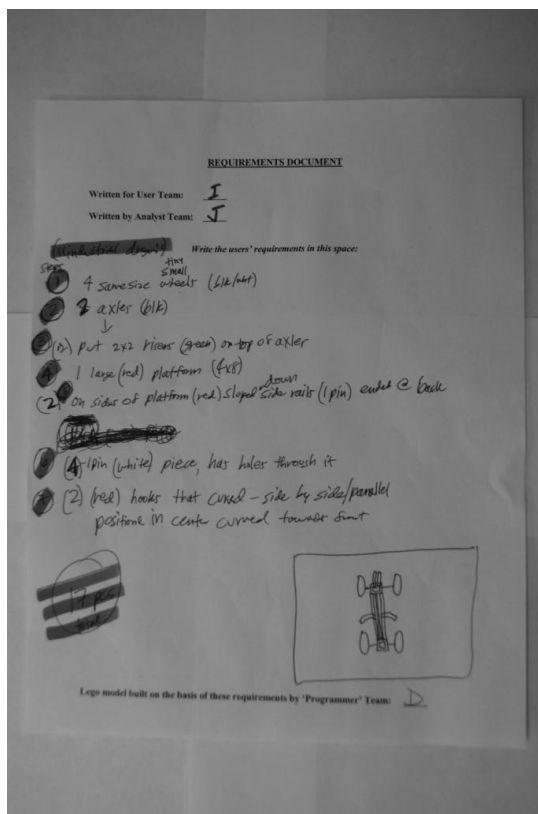 REQUIREMENTS DOCUMENT
Written for User Team: I
Written by Analyst Team: J
Write the users' requirements in this space:
steps
tiny
small
1 4 same size wheels (blk/wht)
2 2 axles (blk)
3 (2) put 2x2 risers (green) on top of axles
4 1 large (red) platform (4x8)
down
(2) on sides of platform (red) sloped side rails (1 pin) ended @ back
(4) 1pin (white) piece, has holes through it
(2) (red) hooks that curved - side by side/parallel
in center curved towards front
17 pcs
total
Lego model built on the basis of these requirements by 'Programmer' Team: D